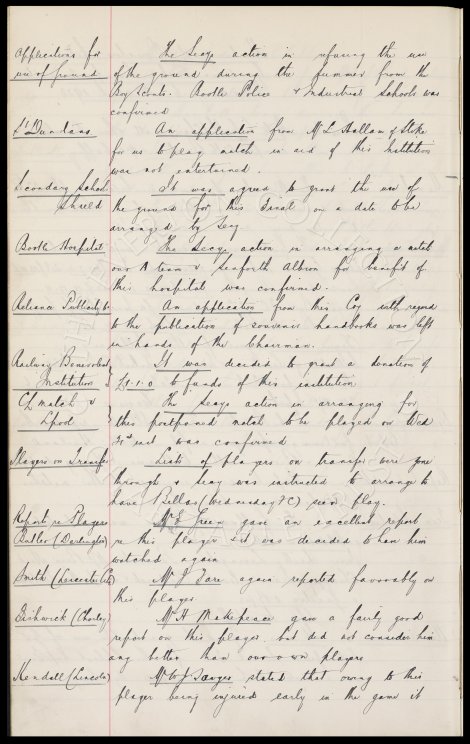 Applications for
use of Ground
The Secys action in refusing the use
of the ground during the summer from the
Boy Scouts. Bootle Police & Industrial Schools was
confirmed
St Dunstans
An application from Mr L Hallam of Stoke
for us to play match in aid of this Institution
was not entertained.
Secondary School
Shield
It was agreed to grant the use of
the ground for this Final on a date to be
arranged by Secy
Bootle Hospital
The Secys action in arranging a match
our A team v Seaforth Albion for benefit of
this hospital was confirmed.
Reliance Publicity Co
An application from this Coy with regard
to the publication of souvenir handbooks was left
in hands of the Chairman.
Railway Benevolent
Institution
It was decided to grant a donation of
£1-1-0 to funds of this institution
CL match v
Lpool
The Secys action in arranging for
this postponed match to be played on Wed
inst was confirmed
Players on Transfer
Lists of players on transfer were gone
through & Secy was instructed to arrange to
have Bellas (Wednesday FC) seen play.
Reports re Players
Butler (Darlington)
Mr E Green gave an excellent report
re this player & it was decided to have him
watched again
Smith (Leicester C)
Mr J Fare again reported favorably on
this player
Fishwick (Chorley)
Mr H Makepeace gave a fairly good
report on this player but did not consider him
any better than our own players
Kendall (Lincoln)
Mr W J Sawyer stated that owing to this
player being injured early in the game it